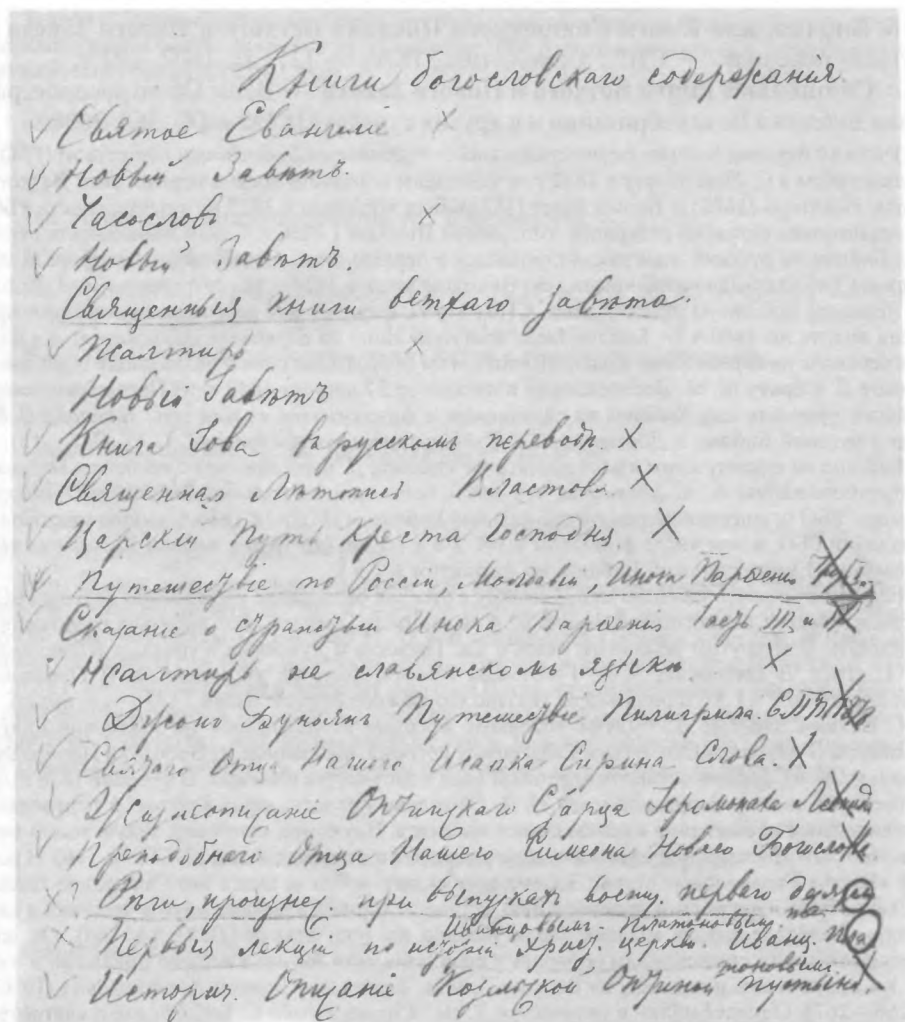 Книги богословскаго содержанія.
Святое Евангиліе
Новый Завѣтъ.
Часословъ
Новый Завѣтъ.
Священныя книги ветхаго завѣта.
Псалтирь
Новый Завѣтъ
Книга Іова въ русскомъ переводѣ.
Священная Лѣтопись Властова
Царскій Путь Креста Господня
Путешествіе по Россіи, Молдавіи, Инока Парѳенія
Сказаніе о странствіи Инока Парѳенія Часть III и
Псалтирь на славянскомъ языкѣ
Джонъ Буньянъ Путешествіе Пилигрима.
Святаго Отца Нашего Исаака Сирина Слова.
Жизнеописаніе Оптинскаго Старца Іеромонаха
Преподобнаго Отца Нашего Симеона Новаго Богослова
Рѣчи, произнес. при выпускахъ воспит. перваго
Иванцовымъ-Платоновымъ.
Первыя лекціи по исторіи Христ. церкви. Иванц. Пла
тоновымъ.
Историч. Описаніе Козельской Оптиной пустыни.